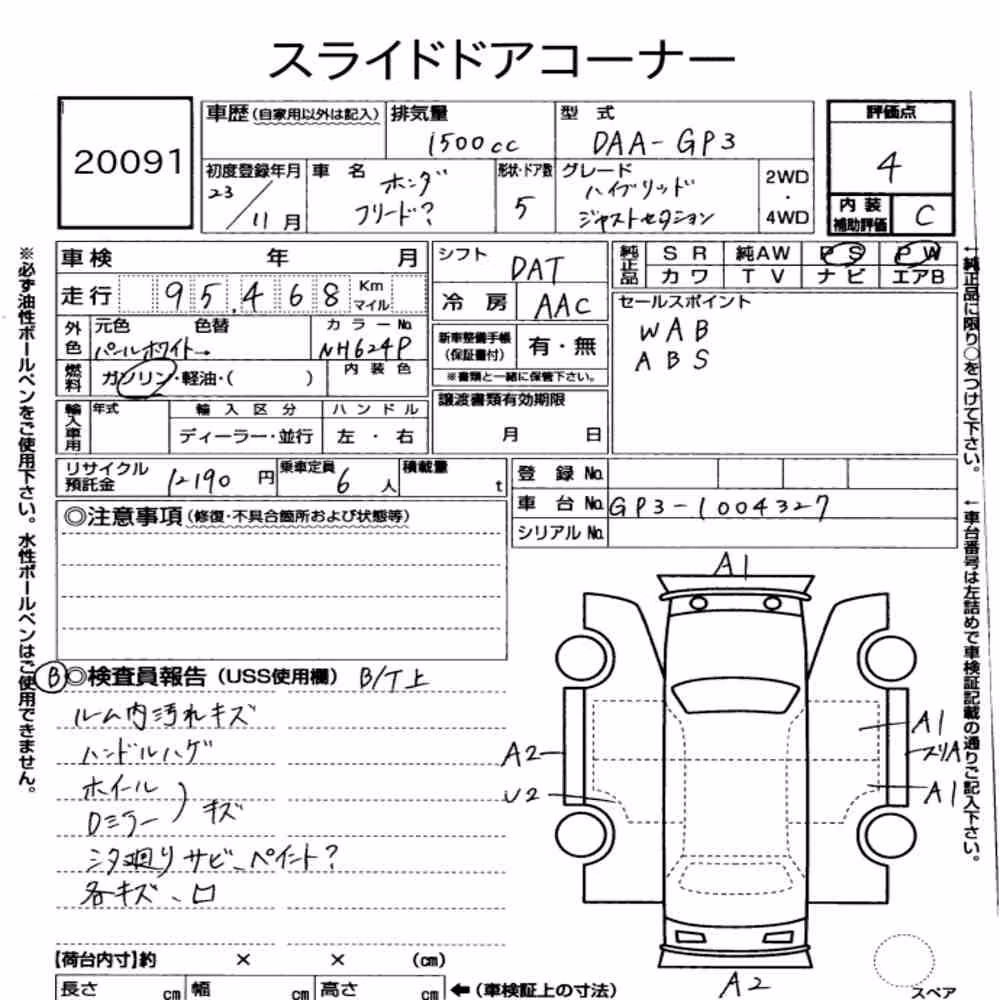 スライドドアコーナー
20091
車歴(自家用以外は記入)
排気量
1500cc
型 式
DAA-GP3
評価点
4
内装
補助評価
C
初度登録年月
23/11月
車 名
ホンダ
フリード?
形状・ドア数
5
グレード
ハイブリッド
ジャストセレクション
2WD
・
4WD
車検 年 月
走行 95,468 Km
マイル
シフト
DAT
冷房
AAC
純正品
SR 純AW PS PW
カワ TV ナビ エアB
外色
元色 色替
パールホワイト→
カラーNo.
NH624P
燃料
ガソリン・軽油・( )
内装色
新車整備手帳
(保証書付)
有・無
※書類と一緒に保管下さい。
セールスポイント
WAB
ABS
輸入車用
年式
輸入区分
ディーラー・並行
ハンドル
左・右
譲渡書類有効期限
月 日
リサイクル
預託金
12190円
乗車定員
6人
積載量
t
登録No.
車台No. GP3-1004327
シリアルNo.
◎注意事項(修復・不具合箇所および状態等)
B ◎検査員報告(USS使用欄) B/T上
ルーム内汚れキズ
ハンドルハゲ
ホイール
Dミラー)キズ
シタ廻りサビ、ペイント?
各キズ、凹
A1
A2
U2
A1
ズリA
A1
A2
スペア
【荷台内寸】約 × × (cm)
長さ cm 幅 cm 高さ cm ←(車検証上の寸法)
※必ず油性ボールペンをご使用下さい。水性ボールペンはご使用できません。
←純正品に限り○をつけて下さい。
←車台番号は左詰めで車検証記載の通りご記入下さい。